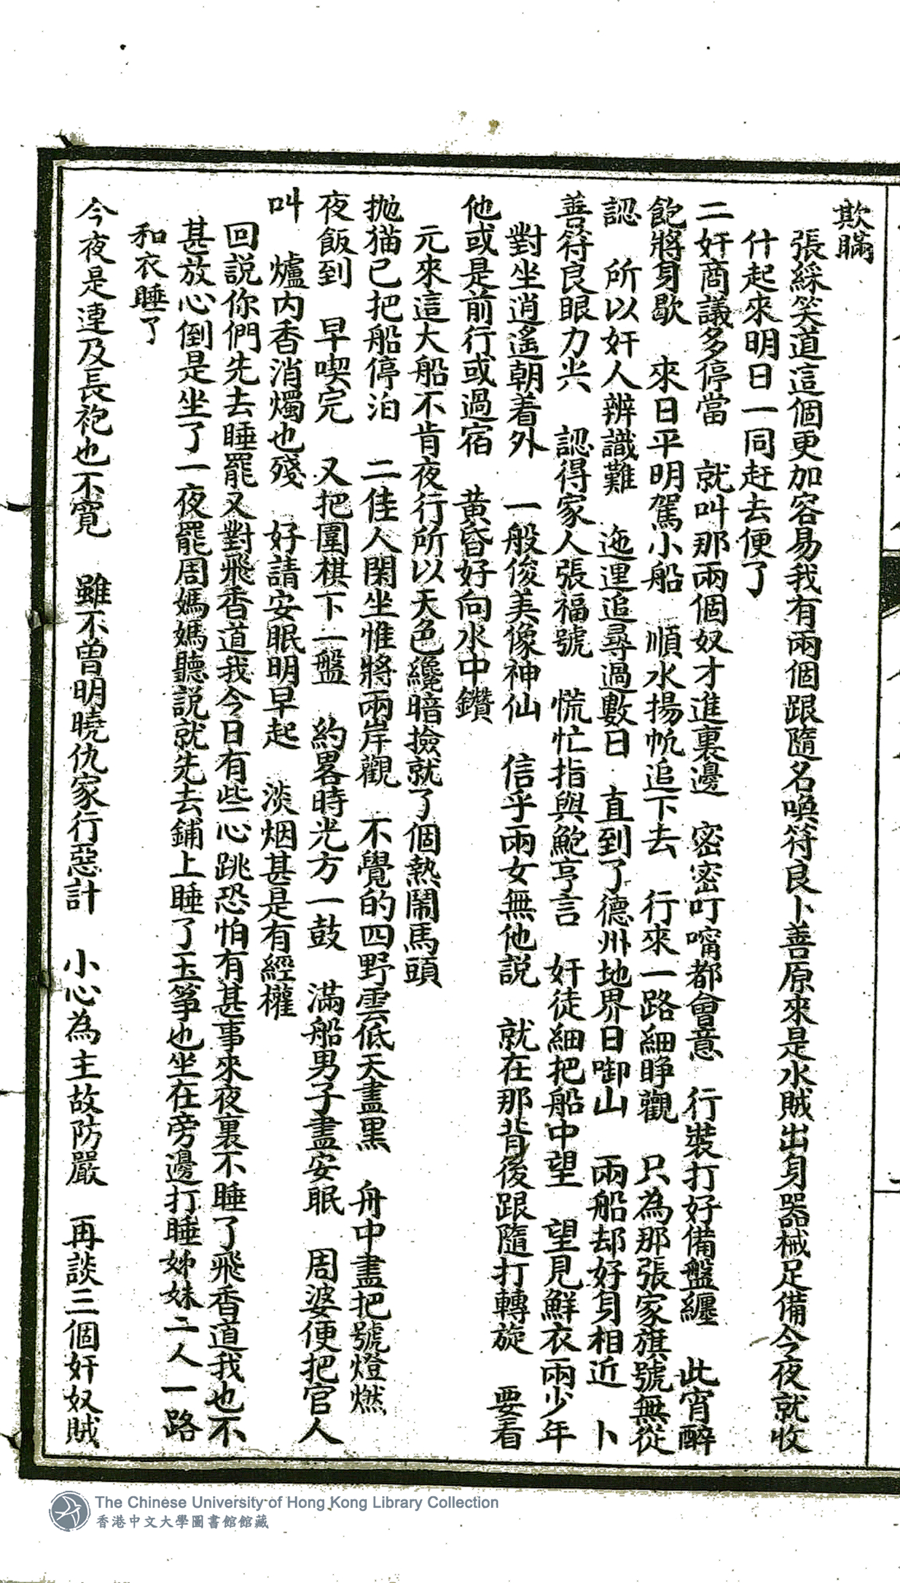 欺瞞
張綵笑道這個更加容易我有兩個跟隨名喚符良卜善原來是水賊出身器械足備今夜就收
什起來明日一同赶去便了
二奸商議多停當　就叫那兩個奴才進裏邊　密密叮嚀都會意　行裝打好備盤纏　此宵醉
飽將身歇　來日平明駕小船　順水揚帆追下去　行來一路細睜觀　只為那張家旗號無從
認　所以奸人辨識難　迤逦追尋過數日　直到了德州地界日啣山　兩船却好身相近　卜
善符良眼力尖　認得家人張福號　慌忙指與鮑亨言　奸徒細把船中望　望見鮮衣兩少年
對坐逍遙朝着外　一般俊美像神仙　信乎兩女無他說　就在那背後跟隨打轉旋　要看
他或是前行或過宿　黃昏好向水中鑽
元來這大船不肯夜行所以天色纔暗撿就了個熱鬧馬頭
拋猫已把船停泊　二佳人閑坐惟將兩岸觀　不覺的四野雲低天盡黑　舟中盡把號燈燃
夜飯到　早喫完　又把圍棋下一盤　約畧時光方一鼓　滿船男子盡安眠　周婆便把官人
叫　爐內香消燭也殘　好請安眠明早起　淡烟甚是有經權
回說你們先去睡罷又對飛香道我今日有些心跳恐怕有甚事來夜裏不睡了飛香道我也不
甚放心倒是坐了一夜罷周媽媽聽說就先去鋪上睡了玉箏也坐在旁邊打睡姊妹二人一路
和衣睡了
今夜是連及長袍也不寬　雖不曾明曉仇家行惡計　小心為主故防嚴　再談三個奸奴賊
The Chinese University of Hong Kong Library Collection
香港中文大學圖書館館藏